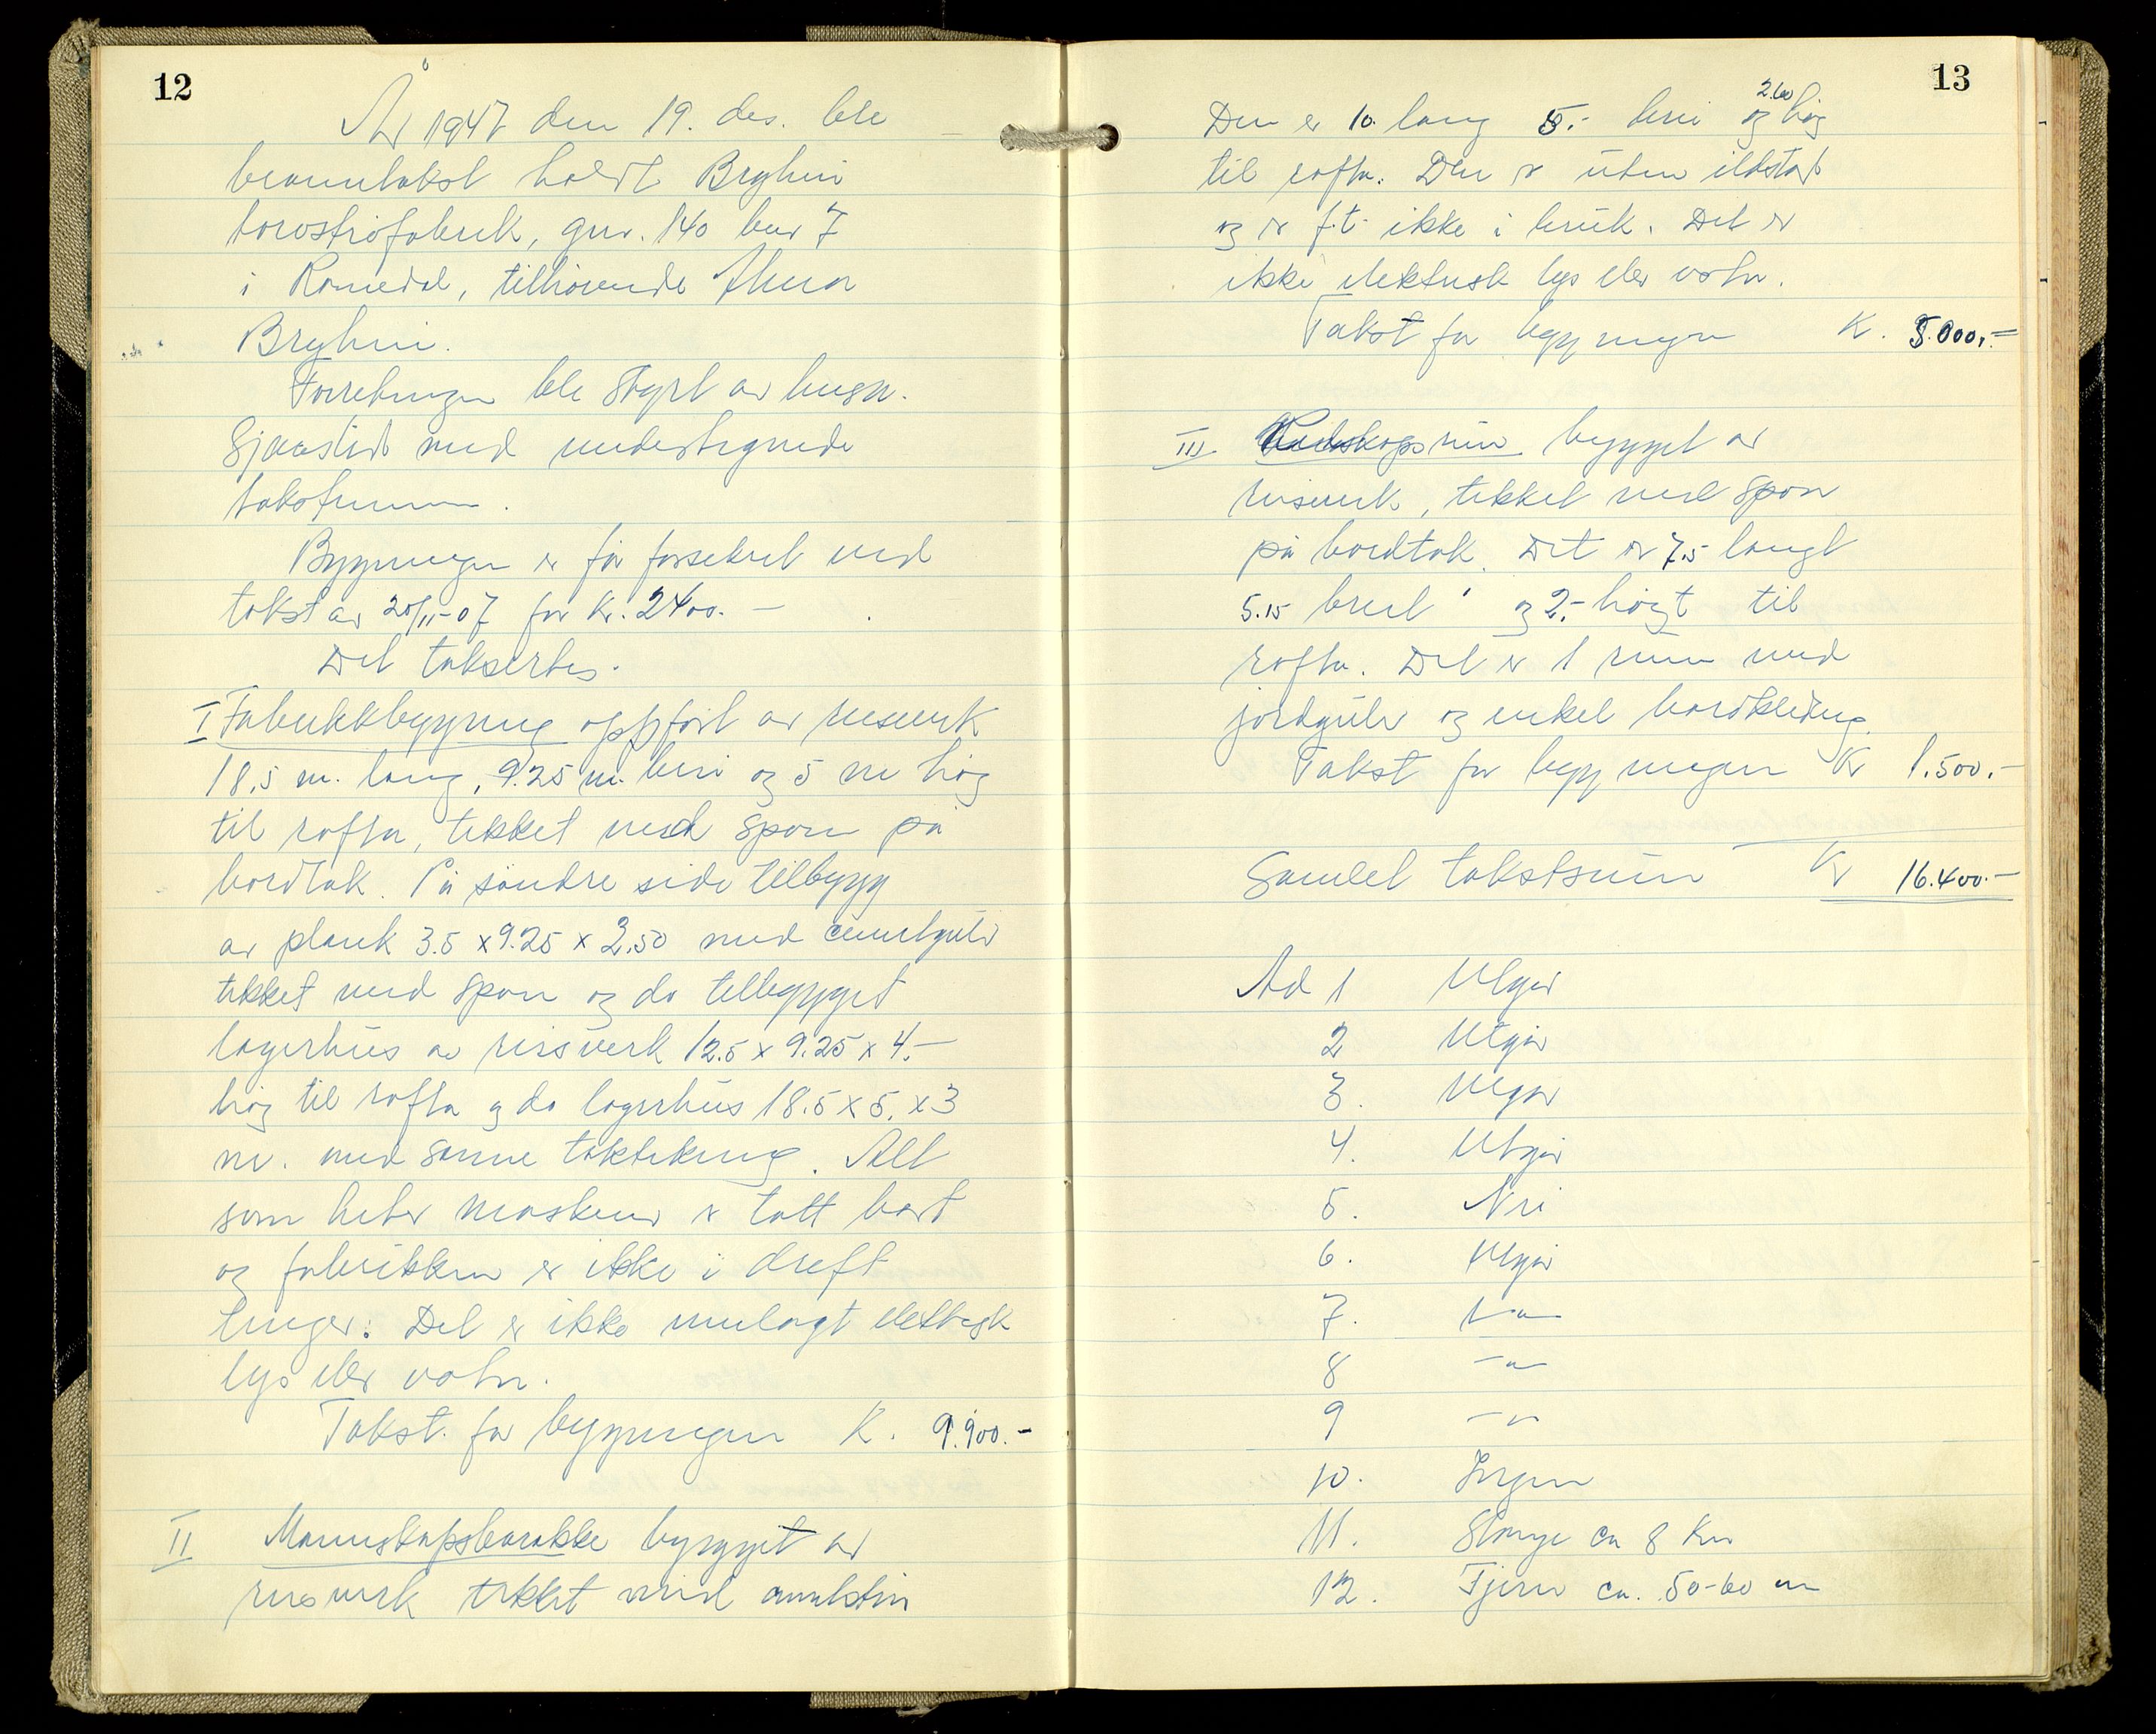 12
År 1947 den 19. des. ble
branntakst holdt Bryhni
torvströfabrik, gnr. 140 bnr 7
i Romedal, tilhörende
Bryhni.
Forretningen ble styrt av lensm.
Sjaastad med undertegnede
takstmenn.
Bygningen er för forsikret ved
takst av 20/11-07 for kr. 2400.-
Det takserbes.
I Fabrikkbygning oppfört av reisverk
18,5 m. lang, 9.25 m. brei og 5 m hög
til rafta, tekket med spon på
bordtak. På söndre side tilbygg
av plank 3.5 x 9.25 x 2.50 med cementgulv
tekket med spon og do tilbygget
lagerhus av reisverk 12.5 x 9.25 x 4.-
hög til rafta og do lagerhus 18.5 x 5. x 3
m. med samme taktekking. Alt
som heter maskiner er tatt bort
og fabrikken er ikke i drift
lenger. Det er ikke innlagt elektrisk
lys eller vatn.
Takst for bygningen K. 9.900.-
II Mannskapsbarakke bygget av
reisverk tekket med
13
Den er 10. lang 5.- brei og 2.60 hög
til rafta. Den er uten ildsted
og er f.t. ikke i bruk. Det er
ikke elektrisk lys eller vatn.
Takst for bygningen K. 5.000.-
III. Redskapsrum bygget av
reisverk, tekket med spon
på bordtak. Det er 7.5 langt
5.15 breit og 2.- högt til
rafta. Det er 1 rum med
jordgulv og enkel bordkledning.
Takst for bygningen Kr 1.500.-
Samlet takstsum Kr 16.400.-
Ad 1 Utgår
2 Utgår
3. Utgår
4. Utgår
5. Nei
6. Utgår
7. -"-
8 -"-
9 -"-
10. Ingen
11. Stange ca 8 Km
12. Tjern ca. 50-60 m